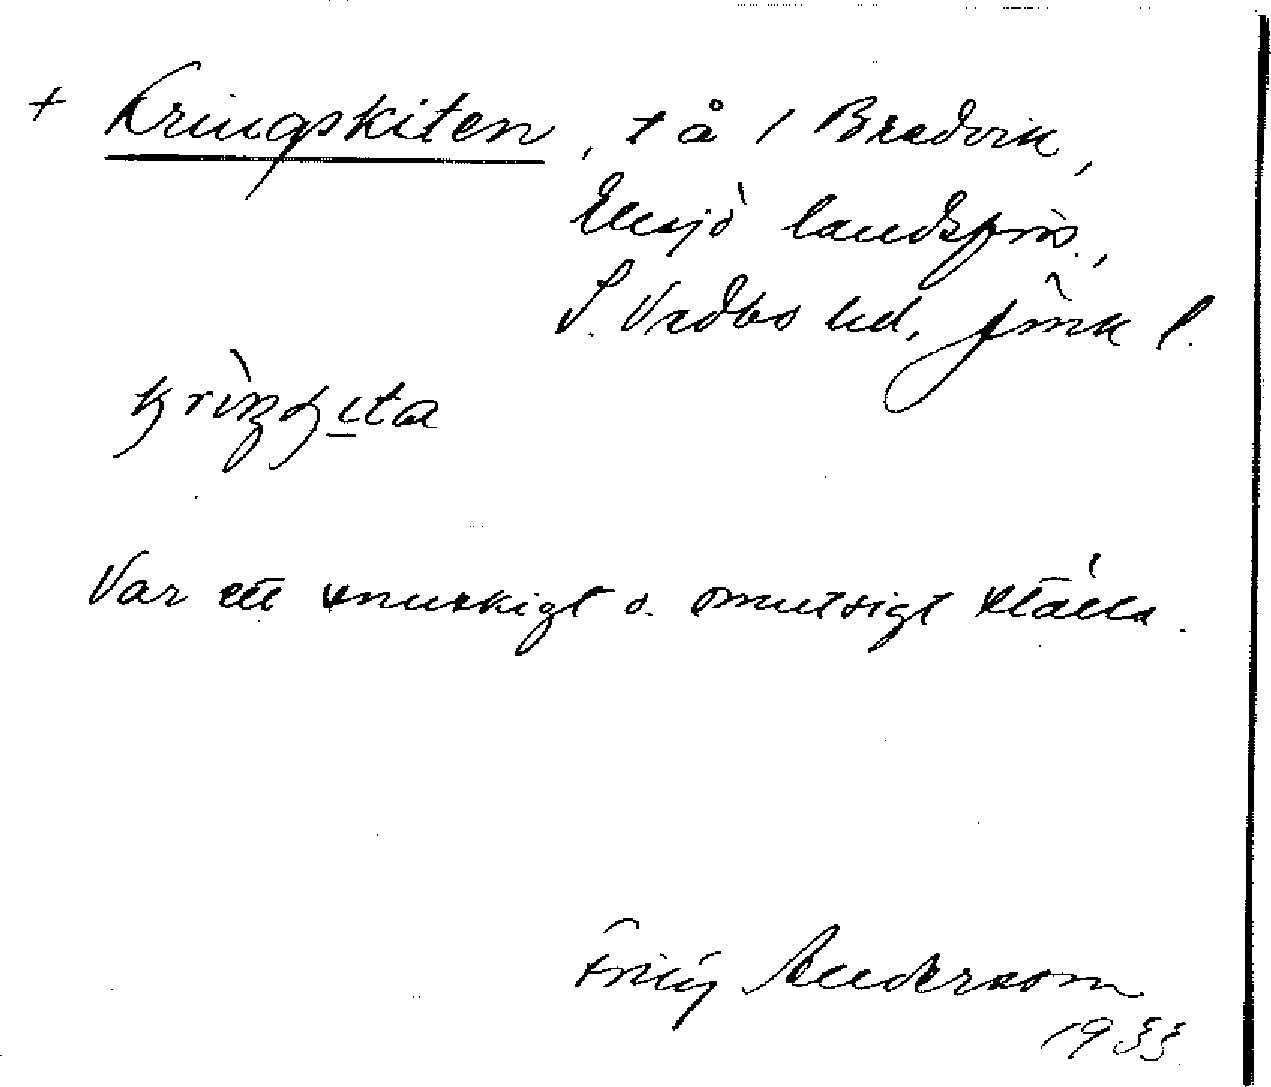 + Kringskiten, tå i Bredvik,
Eksjö landsförs.,
S. Vedbo hd, Jönk l.
Var ett snuskigt o. smutsigt ställe.
Fritiof Andersson
1933